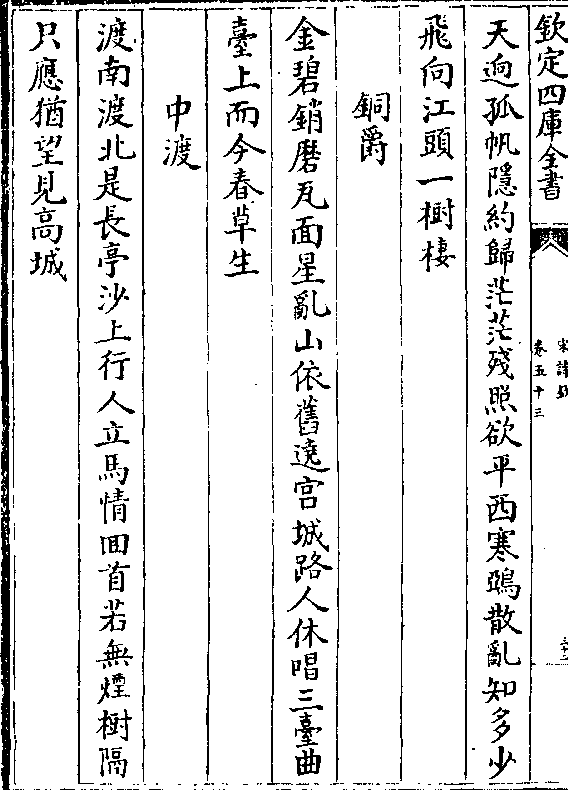 欽定四庫全書
宋詩鈔
卷五十三
天逈孤帆隱約歸茫茫殘照欲平西寒鴉散亂知多少
飛向江頭一樹棲
銅爵
金碧銷磨瓦面星亂山依舊遶宫城路人休唱三臺曲
臺上而今春草生
中渡
渡南渡北是長亭沙上行人立馬情回首若無煙樹隔
只應猶望見高城